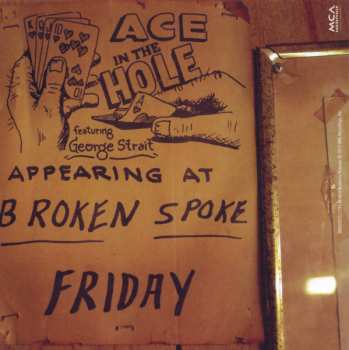 ACE
IN THE
HOLE
featuring
George Strait
APPEARING AT
BROKEN SPOKE
FRIDAY
MCA